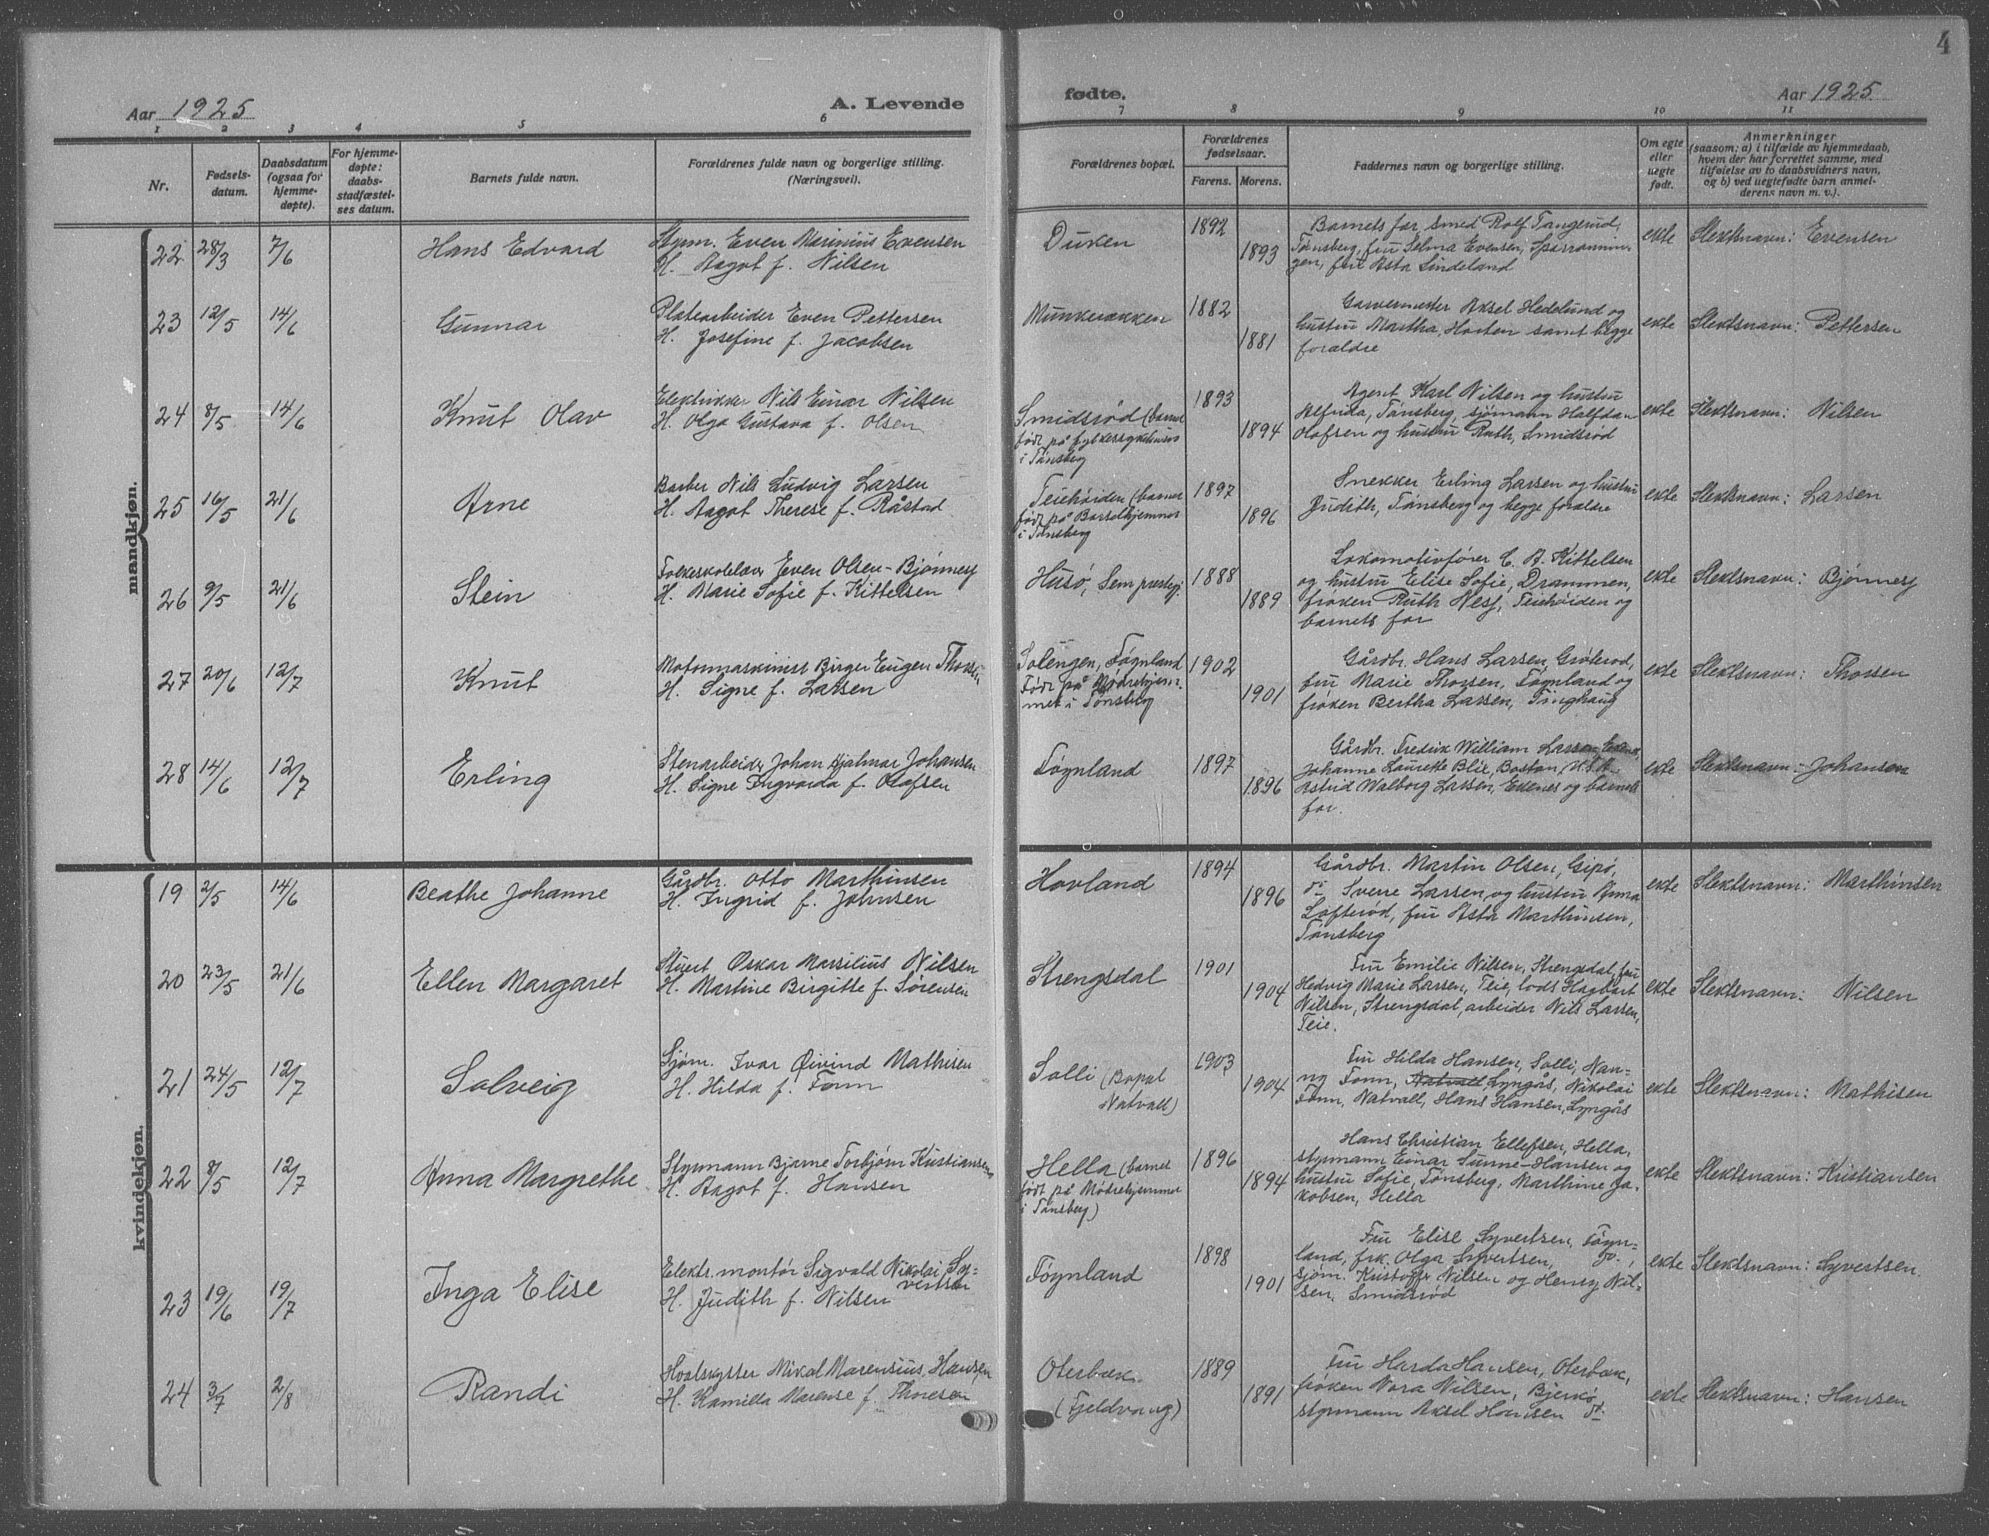 4
Aar 1925 A. Levende fødte. Aar 1925
1 2 3 4 5 6 7 8 9 10 11
Nr.
Fødsels-
datum.
Daabsdatum
(ogsaa for
hjemme-
døpte).
For hjemme-
døpte:
daabs-
stadfæstel-
ses datum.
Barnets fulde navn.
Forældrenes fulde navn og borgerlige stilling.
(Næringsvei).
Forældrenes bopæl.
Forældrenes
fødselsaar.
Farens. Morens.
Faddernes navn og borgerlige stilling.
Om egte
eller
uegte
født.
Anmerkninger
(saasom: a) i tilfælde av hjemmedaab,
hvem der har forrettet samme, med
tilføielse av to daabsvidners navn,
og b) ved uegtefødte barn anmel-
derens navn m. v.).
mandkjøn.
22 28/3 7/6 Hans Edvard
Styrm. Even Marinius Evensen
H. Aagot f. Nilsen
Duken
1892
1893
Barnets far, smed Rolf Tangerud,
Tønsberg, fru Selma Evensen,
gen, fru Asta Lindeland
ekte
Slektsnavn: Evensen
23 12/5 14/6 Gunnar
Platearbeider Even Pettersen
H. Josefine f. Jacobsen
Munkerækken
1882
1881
Garvermester Aksel Hedelund og
hustru Martha, Horten samt begge
forældre
ekte
Slektsnavn: Pettersen
24 8/5 14/6 Knut Olav
Elektriker Nils Einar Nilsen
H. Olga Gustava f. Olsen
Smidsrød (barnet
født på fylkessykehuset
i Tønsberg
1893
1894
Agent Karl Nilsen og hustru
Alfrida, Tønsberg, sjømann Halfdan
Olafsen og hustru Ruth, Smidsrød
ekte
Slektsnavn: Nilsen
25 16/5 21/6 Arne
Barber Nils Ludvig Larsen
H. Aagot Therese f. Råstad
Teiehøiden (barnet
født på Barselhjemmet
i Tønsberg
1897
1896
Snekker Erling Larsen og hustru
Judith, Tønsberg og begge forældre
ekte
Slektsnavn: Larsen
26 9/5 21/6 Stein
Folkeskolelærer Even Olsen-Bjønnes
H. Marie Sofie f. Kittelsen
Husø, Sem prestegj.
1888
1889
Lokomotivfører C. A. Kittelsen
og hustru Elise Sofie, Drammen,
frøken Ruth Ness, Teiehøiden og
barnets far
ekte
Slektsnavn: Bjønnes
27 20/6 12/7 Knut
Motormaskinist Birger Eugen Thorsen
H. Signe f. Larsen
Solengen, Føynland
Født på Mødrehjem-
met i Tønsberg
1902
1901
Gårdbr. Hans Larsen, Grøterød,
fru Marie Thorsen, Føynland og
frøken Bertha Larsen, Tinghaug
ekte
Slektsnavn: Thorsen
28 14/6 12/7 Erling
Stenarbeider Johan Hjalmar Johansen
H. Signe Ingvarda f. Olafsen
Føynland
1897
1896
Gårdbr. Fredrik William Larsen, Ekenes,
Johanne Laurette Blie, Boston, U.S.A.
Astrid Walborg Larsen, Ekenes og barnets
far.
ekte
Slektsnavn: Johansen
kvindekjøn.
19 2/5 14/6 Beathe Johanne
Gårdbr. Otto Marthinsen
H. Ingrid f. Johnsen
Hovland
1894
1896
Gårdbr. Martin Olsen, Gipø,
do Sverre Larsen og hustru Anna
Løfterød, fru Asta Marthinsen,
Tønsberg
ekte
Slektsnavn: Marthinsen
20 23/5 21/6 Ellen Margaret
Stuert Oskar Marsilius Nilsen
H. Martine Birgitte f. Sørensen
Strengsdal
1901
1904
Fru Emilie Nilsen, Strengsdal, fru
Hedvig Marie Larsen, Teie, lods Hagbart
Nilsen, Strengsdal, arbeider Nils Larsen,
Teie.
ekte
Slektsnavn: Nilsen
21 24/5 12/7 Solveig
Sjøm. Ivar Øivind Mathisen
H. Hilda f. Fonn
Solli (Bopæl
Natvall)
1903
1904
Fru Hilda Hansen, Solli, Nan-
ny Fonn, Natvall Lyngås, Nikolai
Fonn, Natvall, Hans Hansen, Lyngås
ekte
Slektsnavn: Mathisen
22 8/5 12/7 Anna Margrethe
Styrmann Bjarne Torbjørn Kristiansen
H. Aagot f. Hansen
Hella (barnet
født på Mødrehjemmet
i Tønsberg)
1896
1894
Hans Christian Ellefsen, Hella,
styrmann Einar Sunne-Hansen og
hustru Sofie, Tønsberg, Marthine Ja-
kobsen, Hella
ekte
Slektsnavn: Kristiansen
23 19/6 19/7 Inga Elise
Elektr. montør Sigvald Nikolai Sy-
vertsen
H. Judith f. Nilsen
Føynland
1898
1901
Fru Elise Syvertsen, Føyn-
land, frk. Olga Syvertsen, do.,
sjøm. Kristoffer Nilsen og Henry Nil-
sen, Smidsrød
ekte
Slektsnavn: Syvertsen
24 3/7 2/8 Randi
Hvalskytter Mikal Marensius Hansen
H. Kamilla Marense f. Thoresen
Oterbæk
(Fjeldvang)
1889
1891
Fru Harda Hansen, Oterbæk,
frøken Nora Nilsen, Bjerkø,
styrmann Aksel Hansen do
ekte
Slektsnavn: Hansen